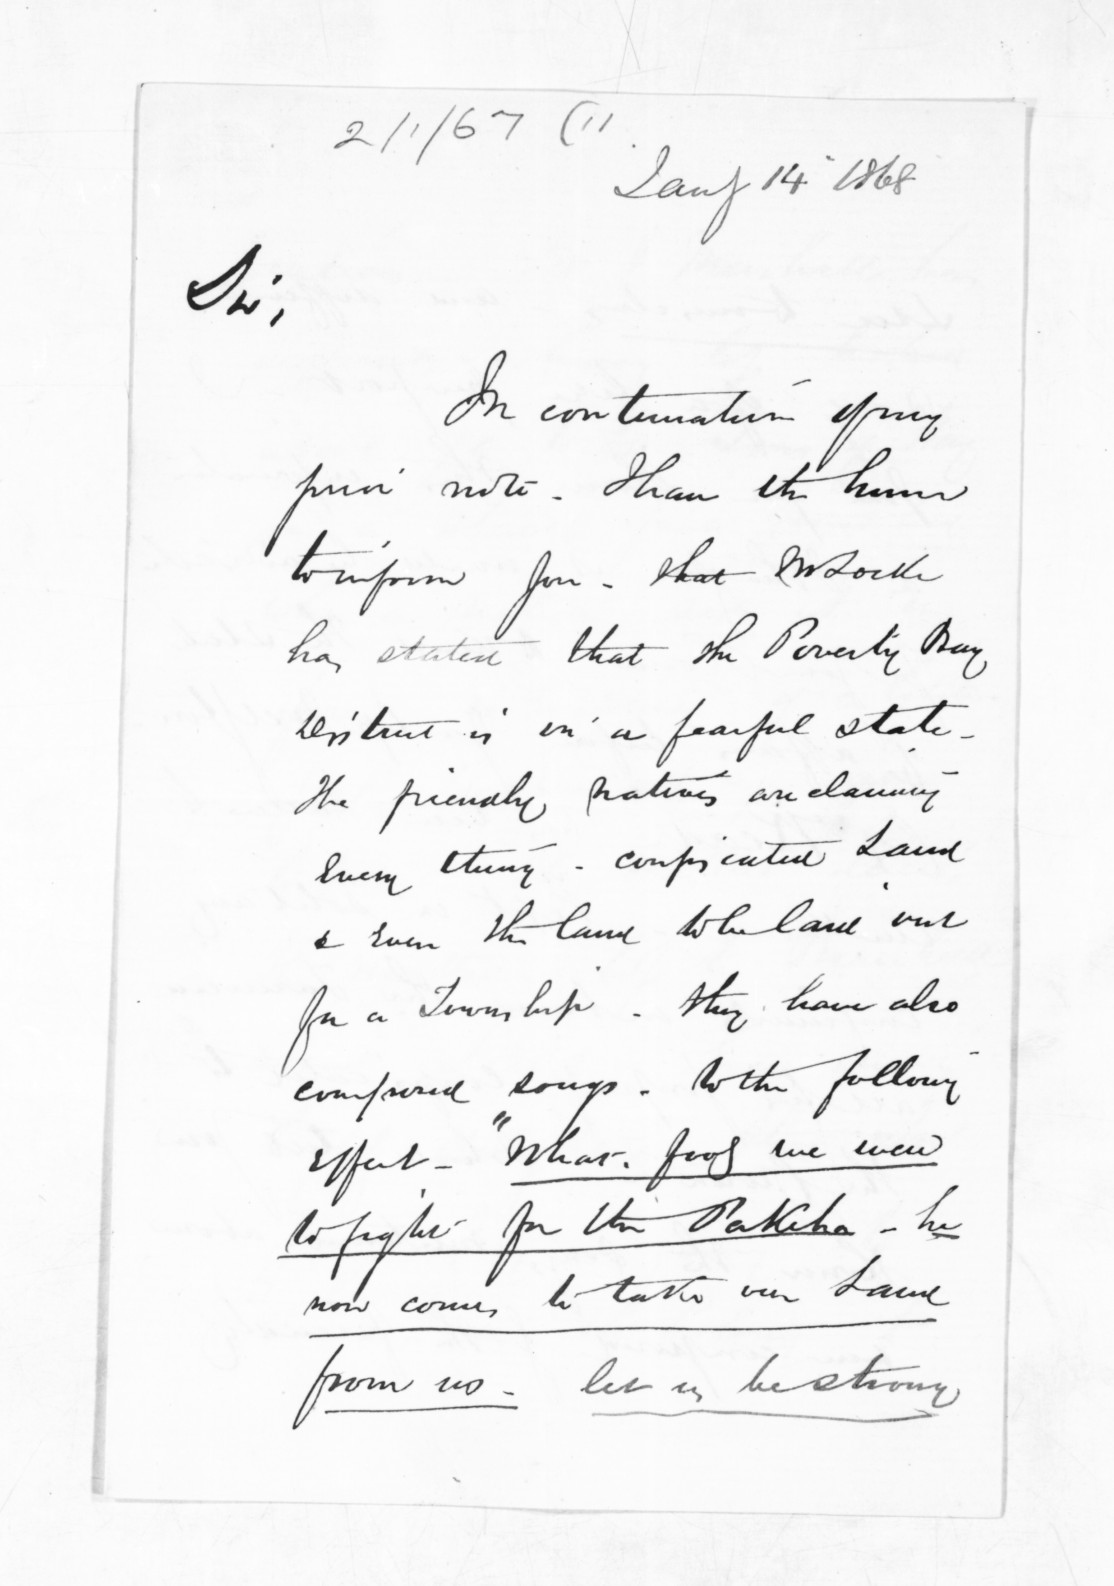 2/1/67 (11.
Jany 14 1868
Sir,
In continuation of my
prior note - I have the honor
to inform you - that Mr Locke
has stated that the Poverty Bay
District is in a fearful state -
the friendly natives are claiming
every thing - confiscated Land
& even the land to be laid out
for a Township - they have also
composed songs - to the following
effect - "What fools we were
to fight for the Pakeha - he
now comes to take our Land
from us - let us be strong